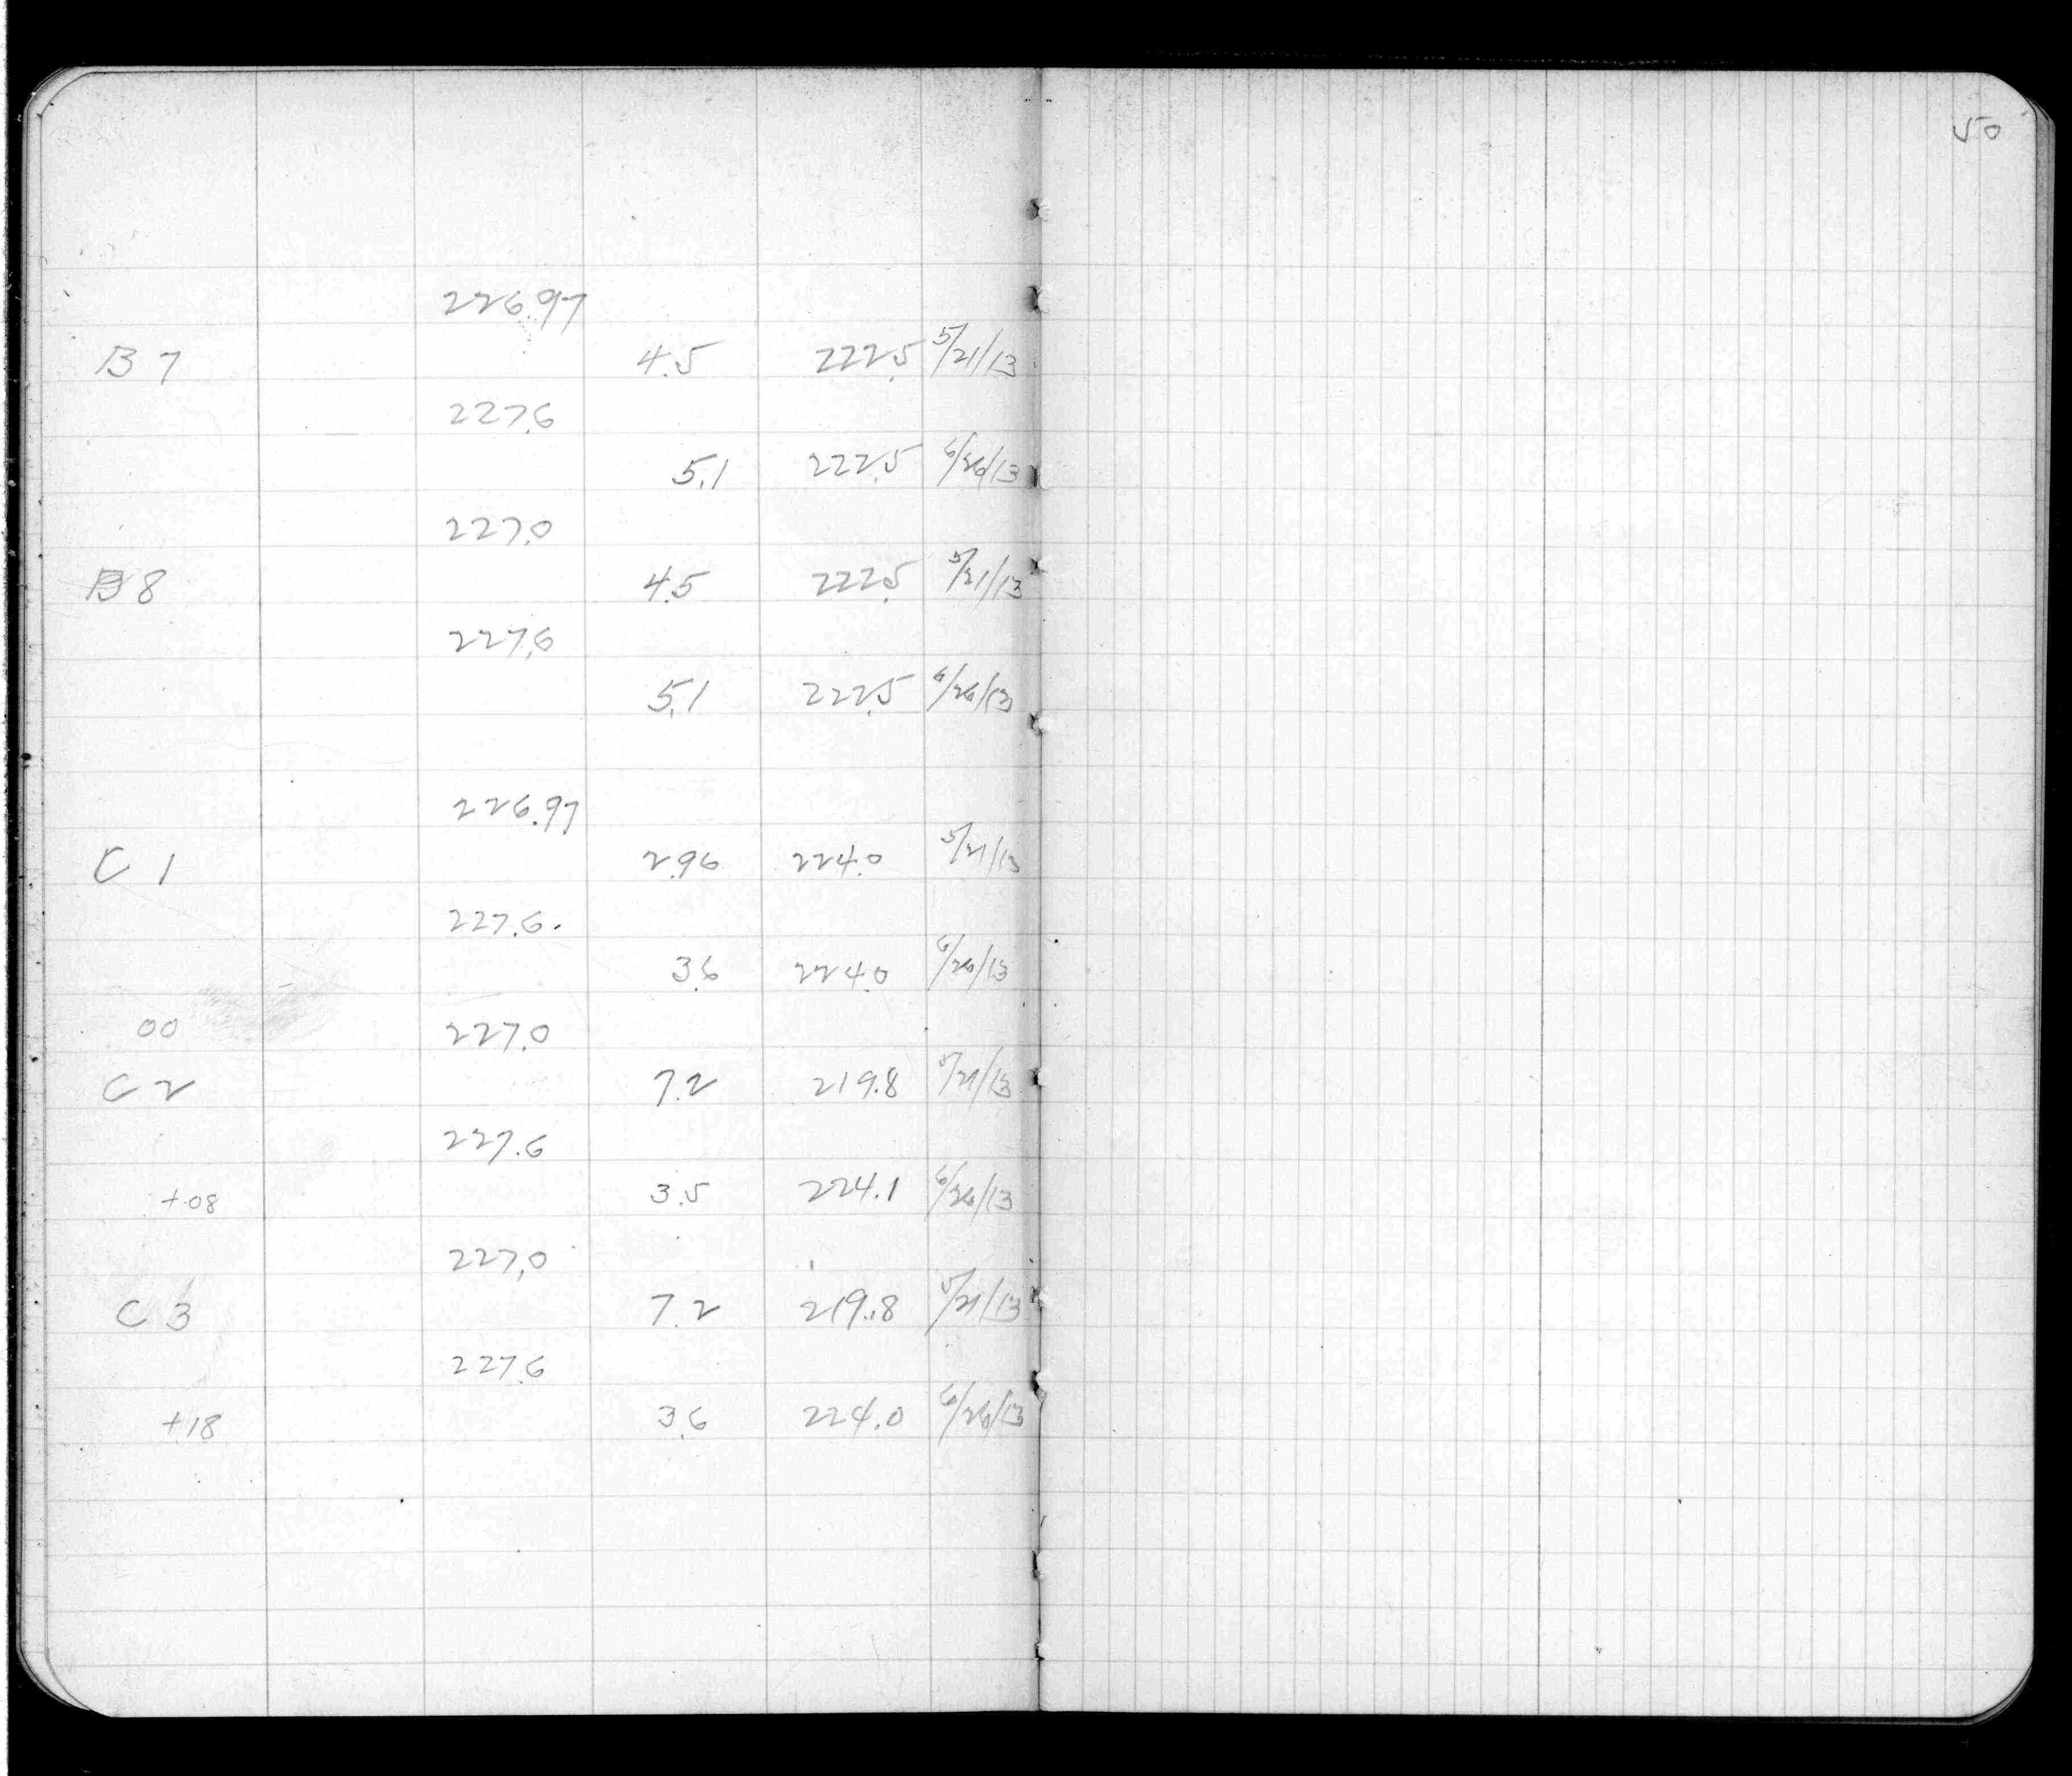 50
226.97
B 7 4.5 222.5 5/21/13
227.6
5.1 222.5 6/26/13
227.0
B 8 4.5 222.5 5/21/13
227.6
5.1 222.5 6/26/13
226.97
C 1 2.96 224.0 5/21/13
227.6.
3.6 224.0 6/26/13
00 227.0
C 2 7.2 219.8 5/21/13
227.6
+08 3.5 224.1 6/26/13
227.0
C 3 7.2 219.8 5/21/13
227.6
+18 3.6 224.0 6/26/13